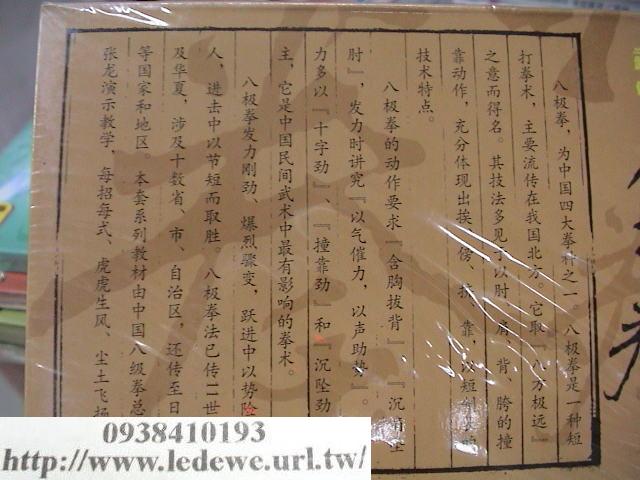 八极拳，为中国四大拳种之一。八极拳是一种短
打拳术，主要流传在我国北方。它取『八方极远』
之意而得名。其技法多见于以肘、肩、背、胯的撞
靠动作，充分体现出挨、傍、挤、靠，以短
技术特点。
八极拳的动作要求『含胸拔背』、『沉
肘』，发力时讲究『以气催力，以声助势』。
力多以『十字劲』、『撞靠劲』和『沉坠劲
主，它是中国民间武术中最有影响的拳术。
八极拳发力刚劲、爆烈骤变，跃进中以势险
人，进击中以节短而取胜 八极拳法已传二世
及华夏，涉及十数省、市、自治区，还传至日
等国家和地区。本套系列教材由中国八级拳总
张龙演示教学，每招每式，虎虎生风、尘土飞扬
0938410193
http://www.ledewe.url.tw/